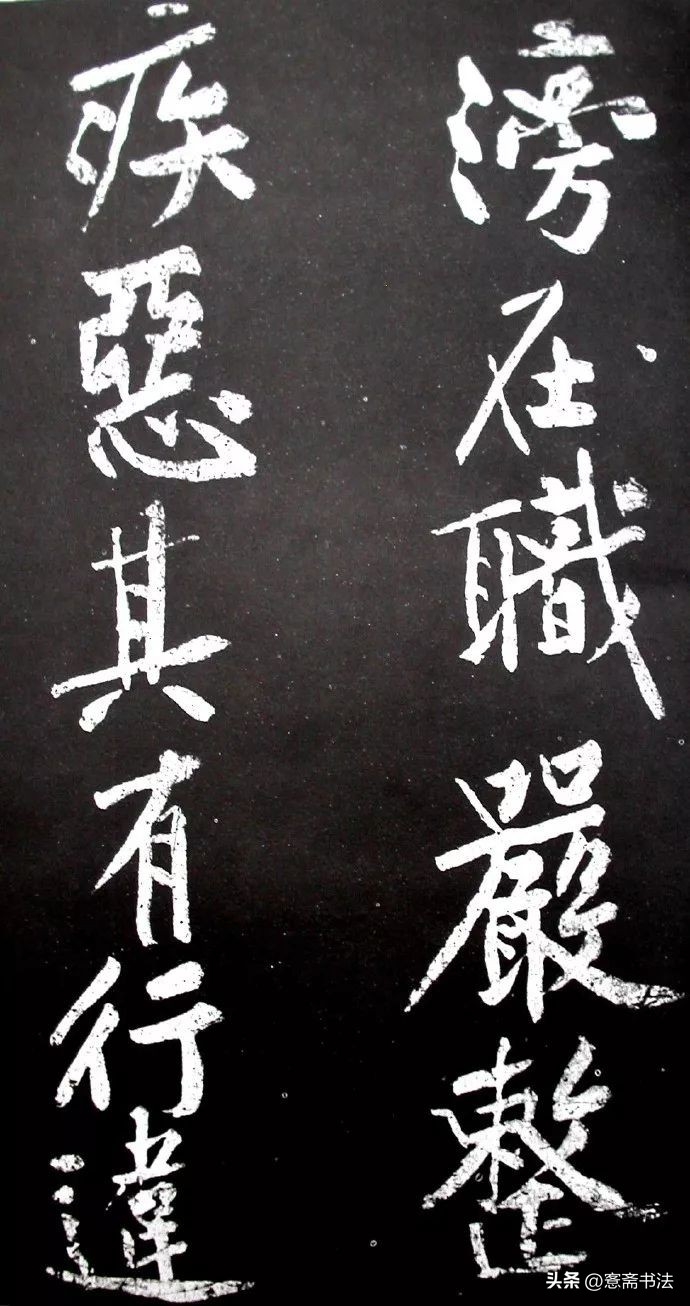 滂在職嚴整
疾惡其有行違
头条@愙斋书法